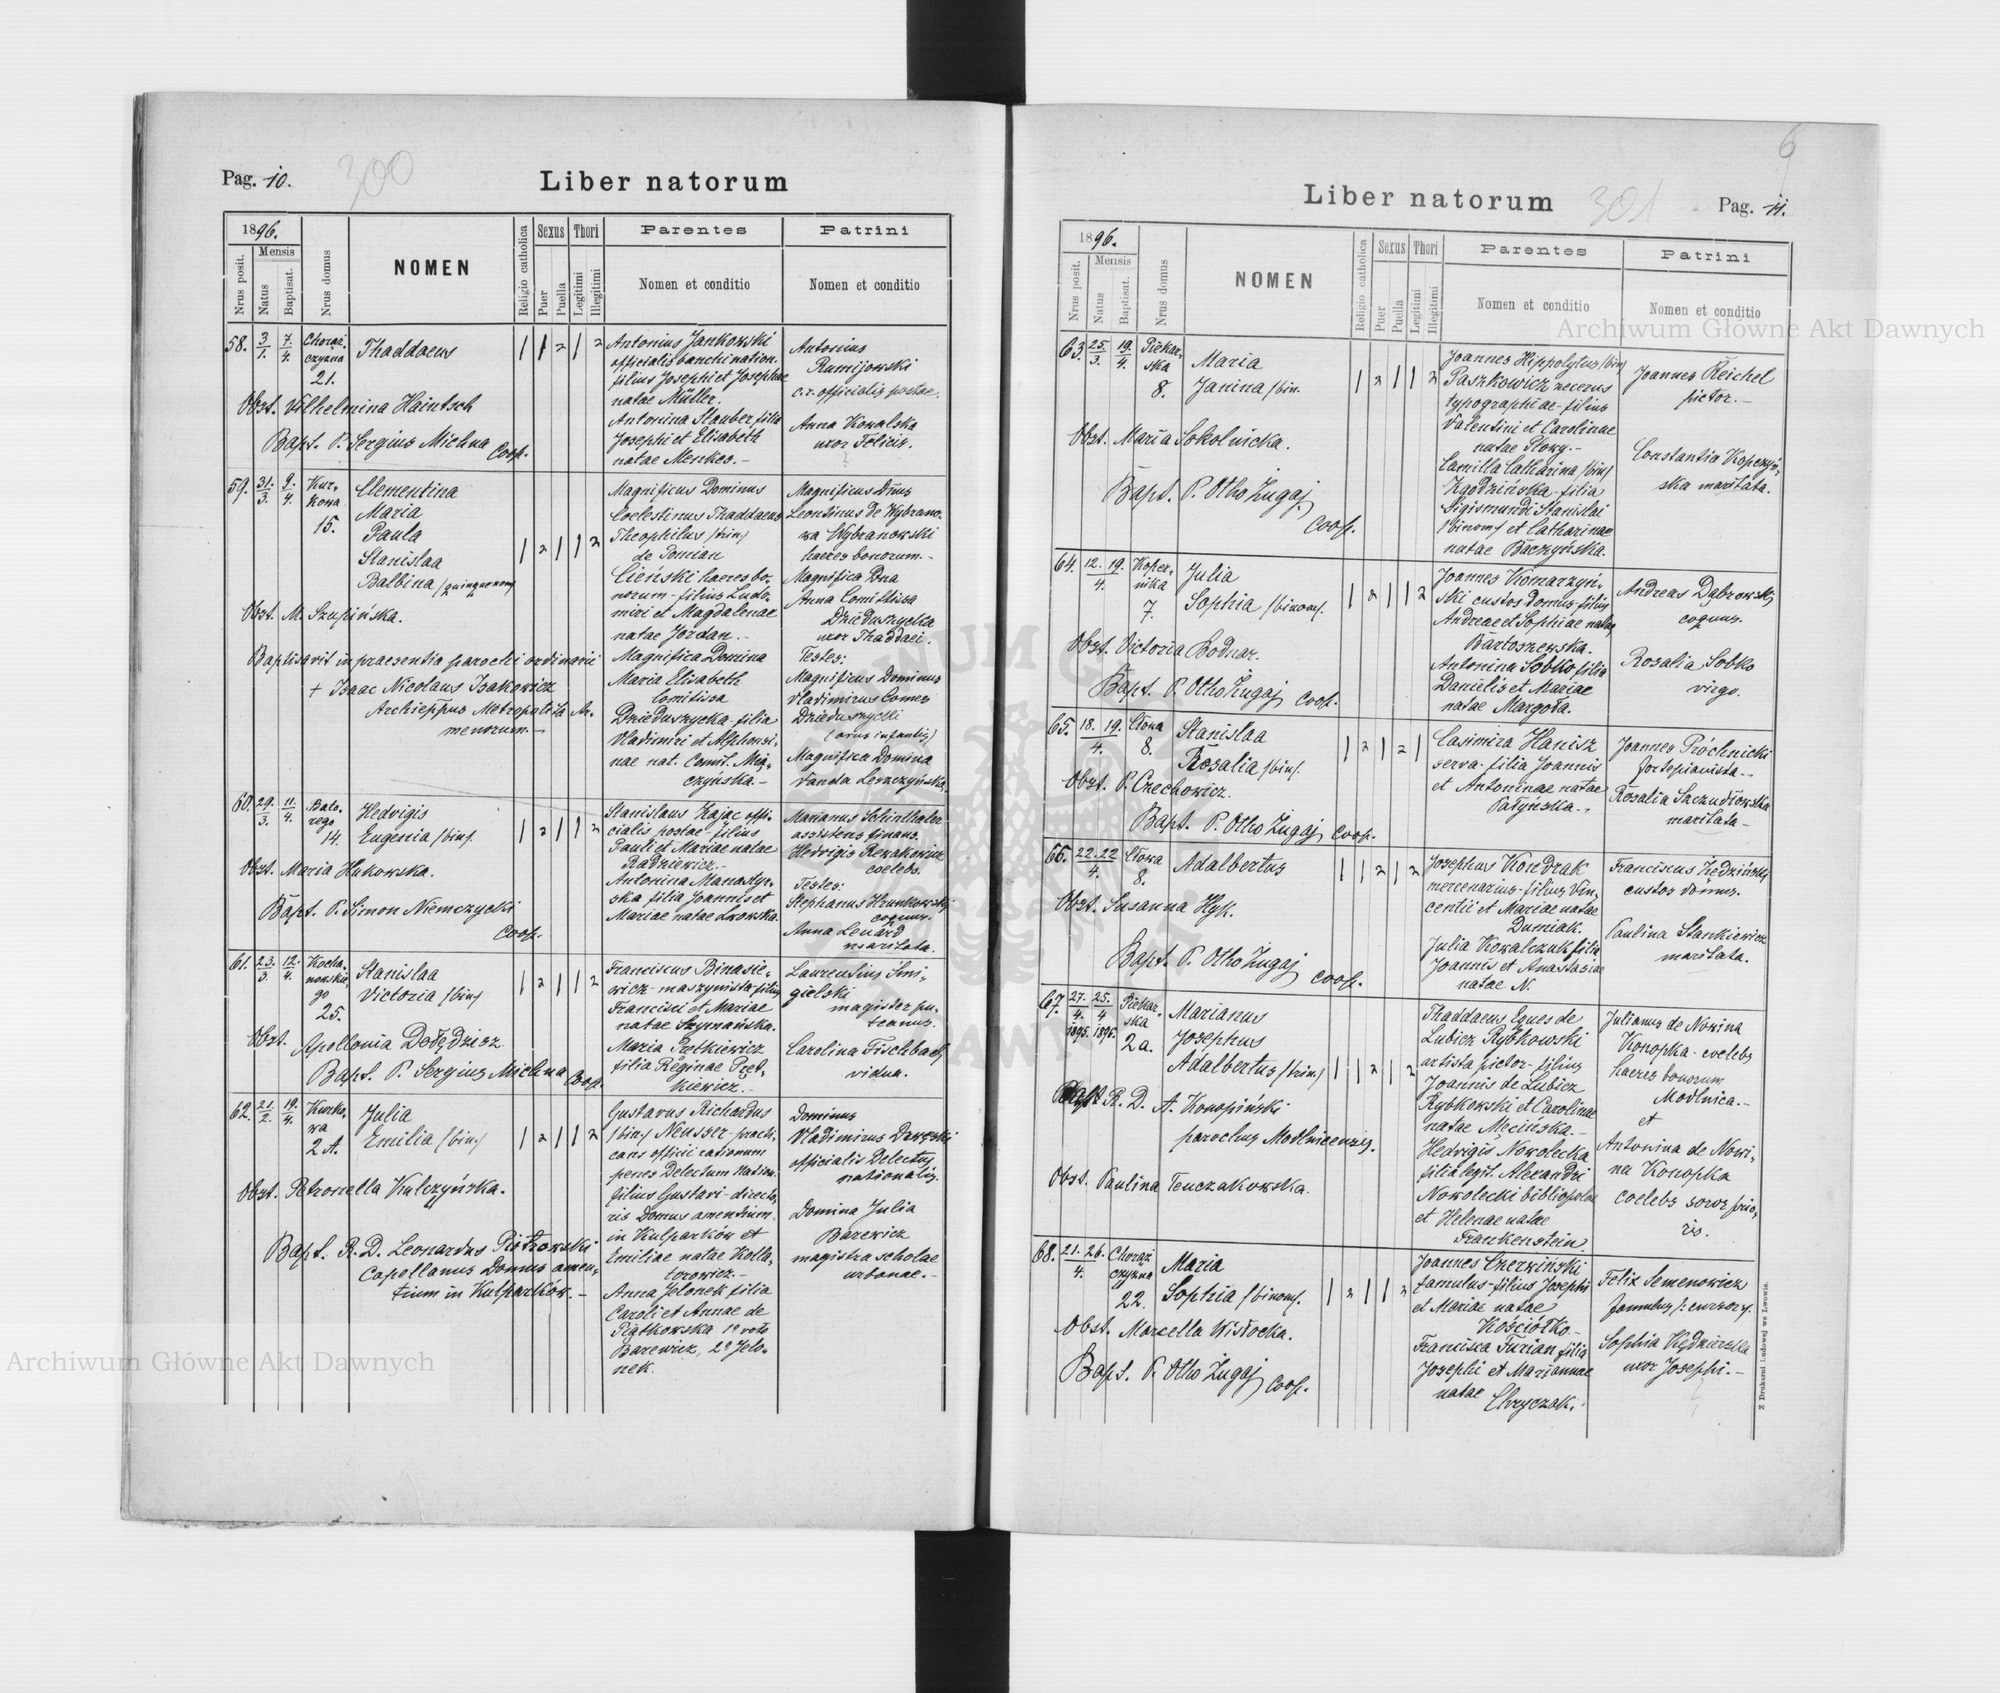 Pag. 10.
300
Liber natorum
1896.
Nrus posit.
Mensis
Natus
Baptisat.
Nrus domus
NOMEN
Religio catholica
Sexus
Puer
Puella
Thori
Legitimi
Illegitimi
Parentes
Nomen et conditio
Patrini
Nomen et conditio
58. 3/1. 7/4. Chorąż-
czyzna
21.
Thaddaeus
1 1 2 1 2
Obst. Vilhelmina Haintsch
Bapt. P. Sergius Michna Coop.
Antonius Jankowski
officialis banchi nation.
filius Josephi et Josephae
natae Müller.
Antonina Stauber filia
Josephi et Elisabeth
natae Menkes.-
Antonius
Rumijowski
c.r. officialis postae.
Anna Kowalska
uxor Felicis.
59. 31./3. 9./4. Kur-
kowa
15.
Clementina
Maria
Paula
Stanislaa
Balbina /quinquenom/
1 2 1 1 2
Obst. M. Szupińska.
Baptisavit in praesentia parochi ordinarii
+ Isaac Nicolaus Isakowicz
Archieppus Metropolita Ar-
menorum.-
Magnificus Dominus
Coelestinus Thaddaeus
Theophilus /trin/
de Pomian
Cieński haeres bo-
norum - filius Ludo-
miri et Magdalenae
natae Jordan.-
Magnifica Domina
Maria Elisabeth
Comitissa
Dzieduszycka - filia
Vladimiri et Alphonsi-
nae nat. Comit. Mią-
czyńska.-
Magnificus Dnus
Leontinus de Wybrano-
wa Wybranowski
haeres bonorum.-
Magnifica Dna
Anna Comitissa
Dzieduszycka
uxor Thaddaei.
Testes:
Magnificus Dominus
Vladimirus Comes
Dzieduszycki
(avus infantis)
Magnifica Domina
Vanda Leszczyńska.
60. 29./3. 11./4. Bato-
rego
14.
Hedvigis
Eugenia /bin/.
1 2 1 1 2
Obst. Maria Hukowska.
Bapt. P. Simon Niemczycki
Coop.
Stanislaus Zając offi-
cialis postae - filius
Pauli et Mariae natae
Radziewicz.-
Antonina Manastyr-
ska filia Joannis et
Mariae natae Lwowska.
Marianus Schinthaler
assistens finans.
Hedvigis Rewakowicz
coelebs.
Testes:
Stephanus Hrunkowski
coquus.
Anna Lenard
maritata.
61. 23./3. 12./4. Kocha-
nowskie-
go
25.
Stanislaa
Victoria /bin/
1 2 1 1 2
Obst. Apollonia Dołędzisz
Bapt. P. Sergius Michna Coop.
Franciscus Binasie-
wicz - maszynista - filius
Francisci et Mariae
natae Szymańska.
Maria Pretkiewicz
filia Reginae Pret-
kiewicz.
Laurentius Smi-
gielski
magister pu-
teanus.
Carolina Fischbach
vidua.
62. 21./2. 19./4. Kurko-
wa
2 A.
Julia
Emilia /bin/
1 2 1 1 2
Obst. Petronella Kulczyńska.
Bapt. R. D. Leonardus Piotrowski
Capellanus Domus amen-
tium in Kulparków.-
Gustavus Richardus
/bin/ Neusser - practi-
cans officii rationum
penes Delectum Nation.
filius Gustavi - directo-
ris Domus amentium
in Kulparków et
Emiliae natae Kolla-
torowicz.-
Anna Jelonek filia
Caroli et Annae de
Piątkowska 1º voto
Barewicz, 2º Jelo-
nek.
Dominus
Vladimirus
officialis Delectus
nationalis.
Domina Julia
Barewicz
magistra scholae
urbanae.-
6
Liber natorum
301
Pag. 11.
1896.
Nrus posit.
Mensis
Natus
Baptisat.
Nrus domus
NOMEN
Religio catholica
Sexus
Puer
Puella
Thori
Legitimi
Illegitimi
Parentes
Nomen et conditio
Patrini
Nomen et conditio
63. 25./3. 19./4. Piekar-
ska
8.
Maria
Janina /bin.
1 2 1 1 2
Obst. Maria Sokolnicka.
Bapt. P. Otho Żugaj.
Coop.
Joannes Hippolytus /bin/
Paszkowicz
typographiae - filius
Valentini et Carolinae
natae Plowy.-
Camilla Catharina /bin/
Zgodzińska - filia
Sigismundi Stanislai
/binom/ et Catharinae
natae Baczyńska.
Joannes Reichel
pictor.-
Constantia Kopczyń-
ska maritata.
64. 12. 19./4. Koper-
nika
7.
Julia
Sophia /binom/.
1 2 1 1 2
Obst. Victoria Bodnar.
Bapt. P. Otho Żugaj Coop.
Joannes Komarzyń-
ski custos domus - filius
Andreae et Sophiae natae
Bartoszewska.
Antonina Sobko filia
Danielis et Mariae
natae Margoła.
Andreas Dąbrowski
coquus.
Rosalia Sobko
virgo.
65. 18. 19./4. Cłowa
8.
Stanislaa
Rosalia /bin/.
1 2 1 2 1
Obst. P. Czechowicz.
Bapt. P. Otho Żugaj Coop.
Casimira Hanisz
serva - filia Joannis
et Antoninae natae
Pałyńska.-
Joannes Próchnicki
fortepianista.-
Rosalia Saczudłowska
maritata-
66. 22. 22/4. Cłowa
8.
Adalbertus
1 1 2 1 2
Obst. Susanna Hyk.
Bapt. P. Otho Żugaj
Coop.
Josephus Kondrak
mercenarius - filius Vin-
centii et Mariae natae
Dumiak.
Julia Kowalczuk filia
Joannis et Anastasiae
natae N.
Franciscus Zędziński
custos domus.
Paulina Stankiewicz
maritata.
67. 27./4. 1895. 25./4 1896. Piekar-
ska
2a.
Marianus
Josephus
Adalbertus /trin/
1 1 2 1 2
Bapt R. D. A. Konopiński
parochus Modlnicensis.
Obst. Paulina Tenczakowska.
Thaddaeus Eques de
Lubicz Rybkowski
artista pictor - filius
Joannis de Lubicz
Rybkowski et Carolinae
natae Męcińska.-
Hedvigis Nowolecka
filia legit. Alexandri
Nowolecki bibliopolae
et Helenae natae
Frankenstein.
Julianus de Nowina
Konopka - coelebs
haeres bonorum
Modlnica.-
et
Antonina de Nowi-
na Konopka
coelebs soror prio-
ris.
68. 21. 26./4. Chorąż
czyzna
22.
Maria
Sophia /binom/.
1 2 1 1 2
Obst. Marcella Wisłocka.
Bapt. P. Otho Żugaj Coop.
Joannes Czerwiński
famulus - filius Josephi
et Mariae natae
Kościółko-
Francisca Furian filia
Josephi et Mariannae
natae
Chryczak.
Felix Semenowicz
famulus
Sophia Kędzierska
uxor Josephi.-
Z Drukarni Ludowej we Lwowie.
Archiwum Główne Akt Dawnych
Archiwum Główne Akt Dawnych